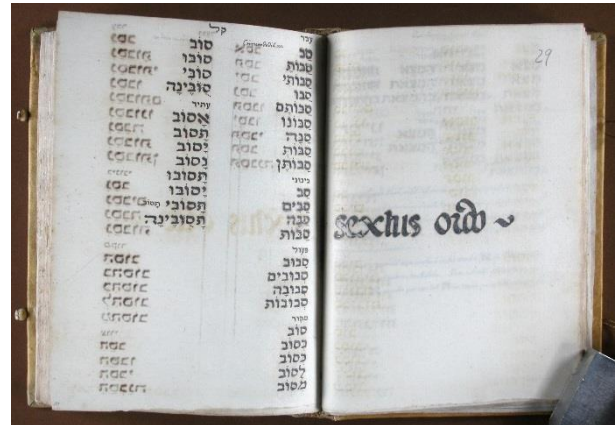 קל
עבר
סב
סבות
סבותי
סבו
סבותם
סבונו
סבה
סבות
סבותן
בינוני
סב
סבים
סבה
סבות
פעול
סבוב
סבובים
סבובה
סבובות
מקור
סוב
בסוב
כסוב
לסוב
מסוב
סוב
סובו
סובי
סובינה
עתיד
אסוב
תסוב
יסוב
נסוב
תסובו
יסובו
תסובי
תסובינה
29
sextus ordo